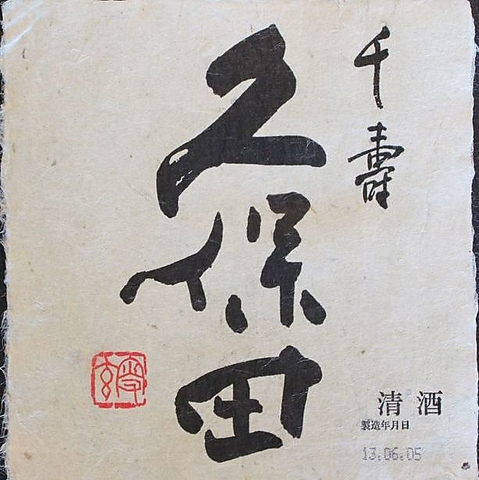 千壽
久保田
清酒
製造年月日
13.06.05